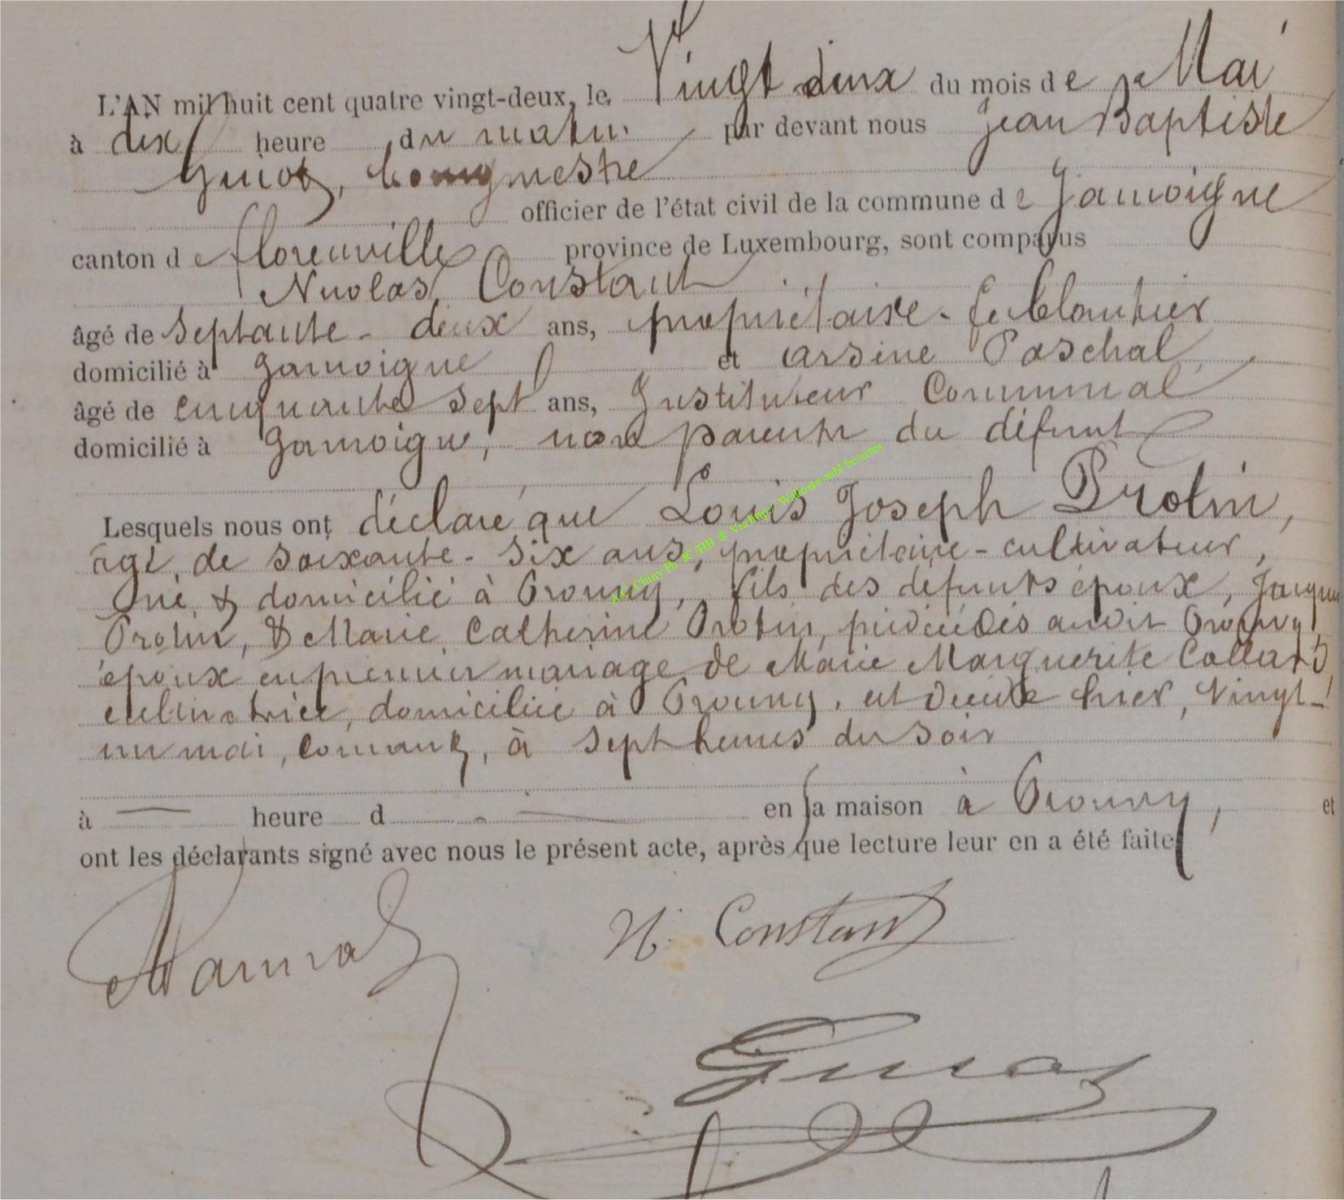 L'AN mil huit cent quatre vingt-deux, le Vingt deux du mois de Mai
à dix heure du matin par devant nous Jean Baptiste
bourgmestre
officier de l'état civil de la commune de Jamoigne
canton de florenville province de Luxembourg, sont comparus
Nicolas Constant
âgé de septante-deux ans, propriétaire
domicilié à Jamoigne et arsène Paschal,
âgé de cinquante sept ans, Instituteur Communal
domicilié à Jamoigne, non parents du défunt
Lesquels nous ont déclaré que Louis Joseph Protin,
âgé de soixante-six ans, propriétaire-cultivateur,
né & domicilié à Prouvy, fils des défunts époux, Jacques
Protin, & Marie Catherine Protin, prédécédés audit Prouvy,
époux en premier mariage de Marie Marguerite Collard
cultivatrice, domiciliée à Prouvy, est décédé hier, vingt-
un mai, courant, à sept heures du soir
à heure d en sa maison à Prouvy, et
ont les déclarants signé avec nous le présent acte, après que lecture leur en a été faite
N. Constant